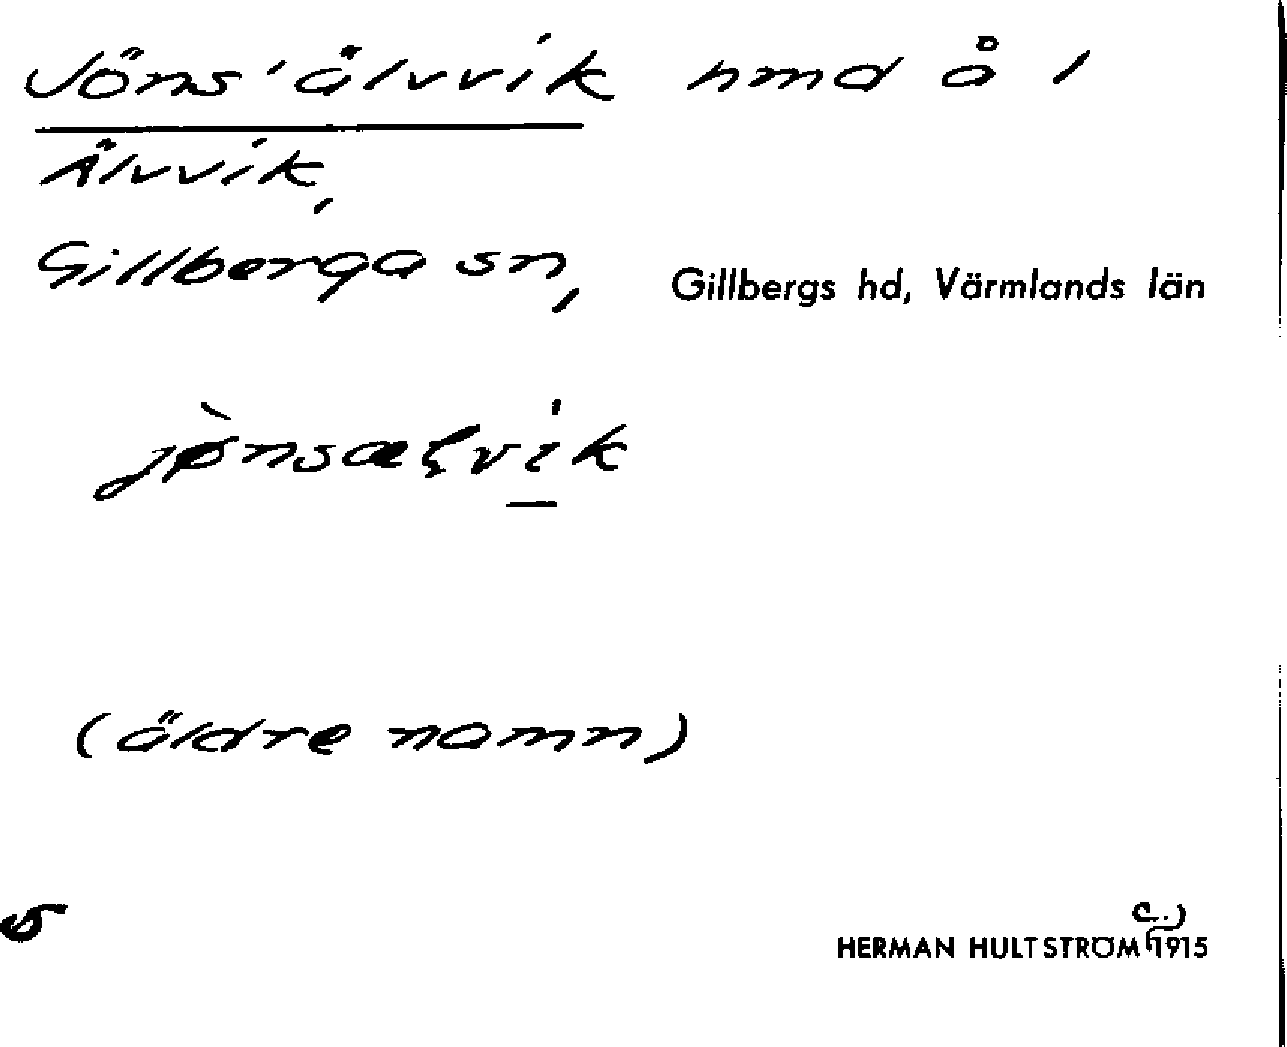 Jöns'älvvik hmd å 1
Älvvik,
Gillberga sn, Gillbergs hd, Värmlands län
jǿnsæɽvik
(äldre namn)
5
HERMAN HULTSTRÖM (c.) 1915